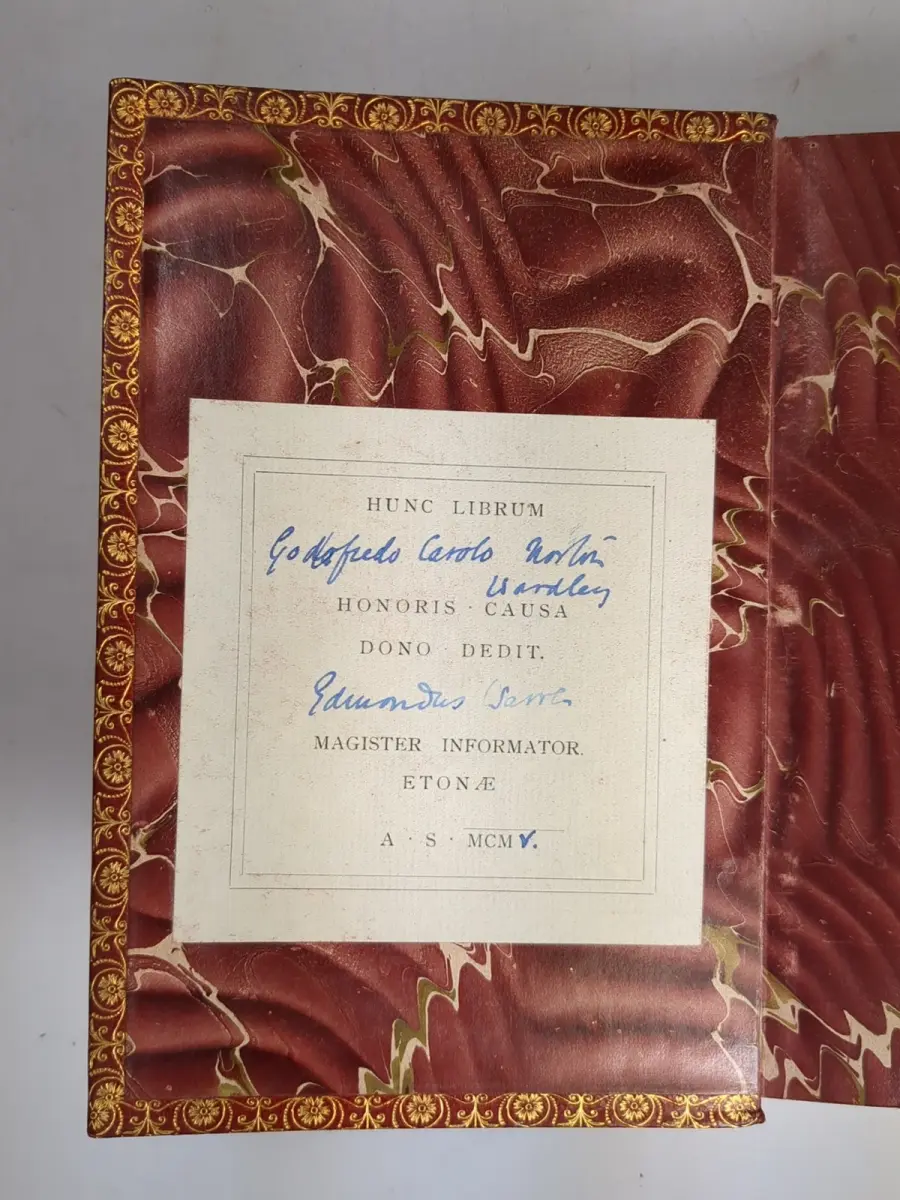 HUNC LIBRUM
Godofredo Carolo Norton
Wardley
HONORIS · CAUSA
DONO · DEDIT.
Edmondus Warre
MAGISTER INFORMATOR.
ETONÆ
A · S · MCMV.